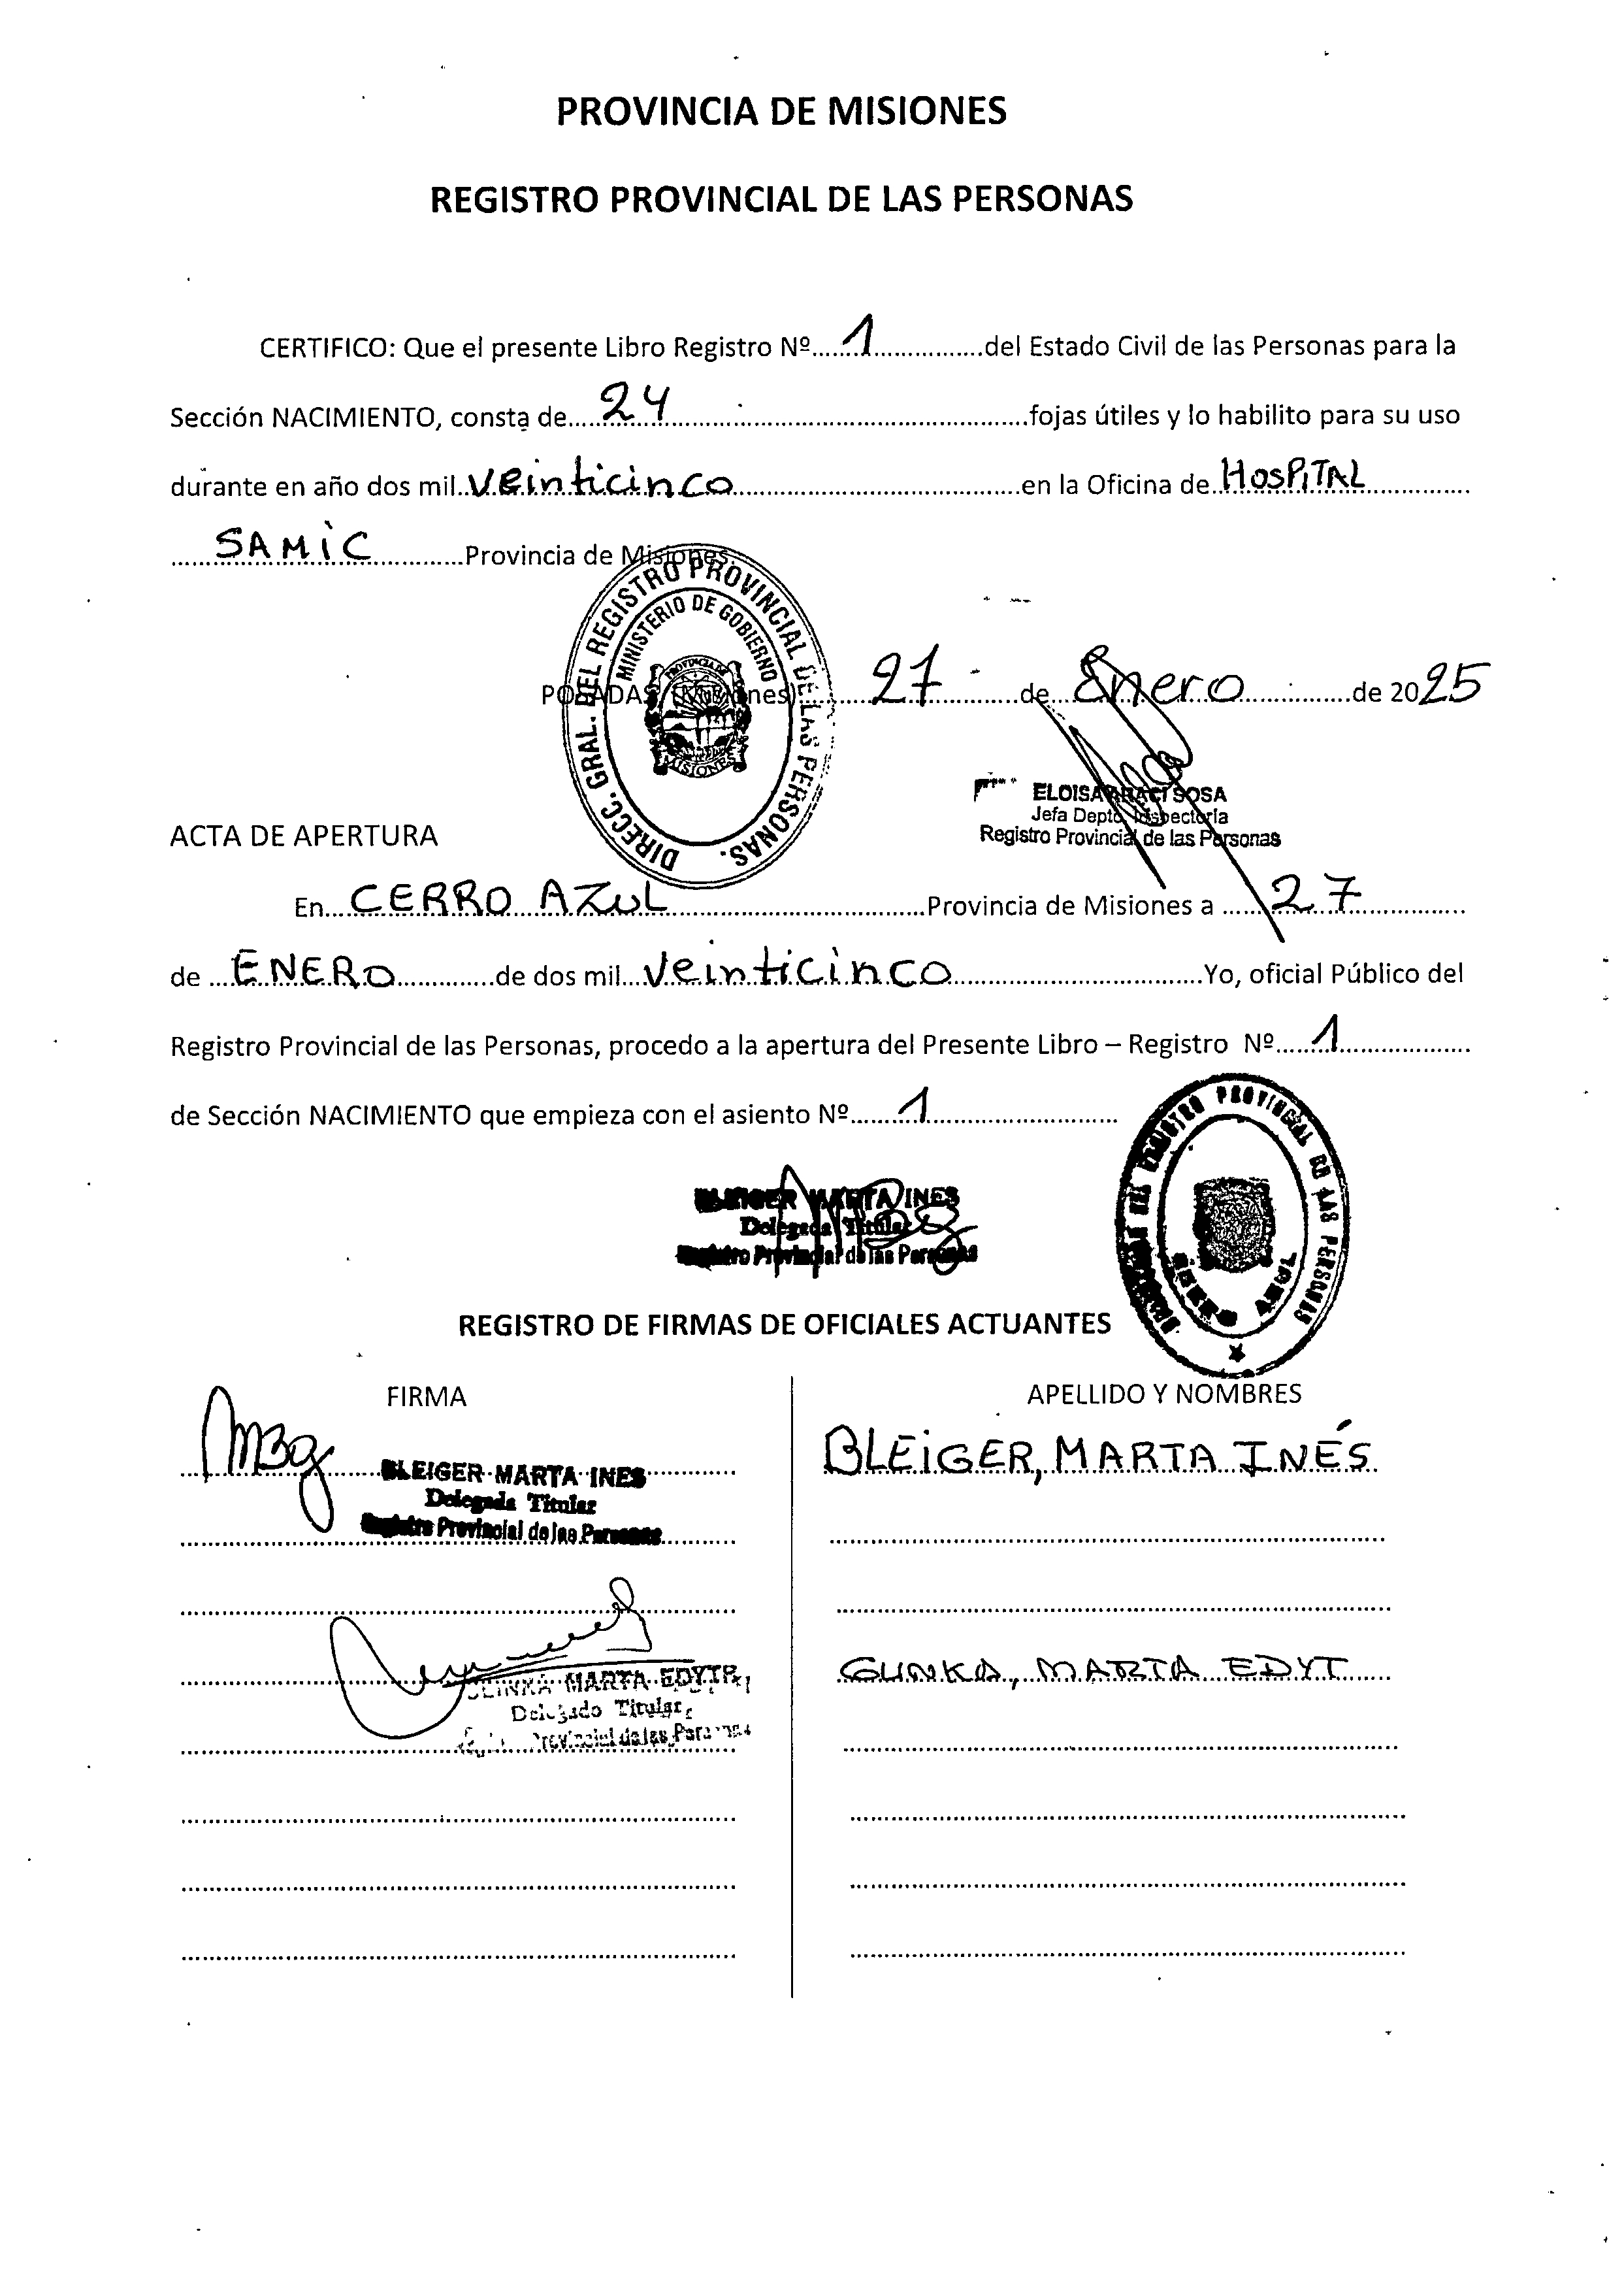 PROVINCIA DE MISIONES
REGISTRO PROVINCIAL DE LAS PERSONAS
CERTIFICO: Que el presente Libro Registro Nº 1 del Estado Civil de las Personas para la
Sección NACIMIENTO, consta de 24 fojas útiles y lo habilito para su uso
durante en año dos mil veinticinco en la Oficina de HOSPITAL
SAMIC Provincia de Misiones.
DIRECC. GRAL. DEL REGISTRO PROVINCIAL DE LAS PERSONAS.
MINISTERIO DE GOBIERNO
PROVINCIA DE
MISIONES
POSADAS (Misiones) 27 de Enero de 2025
ELOISA SOSA
Jefa Depto. Inspectoría
Registro Provincial de las Personas
ACTA DE APERTURA
En CERRO AZUL Provincia de Misiones a 27
de ENERO de dos mil veinticinco Yo, oficial Público del
Registro Provincial de las Personas, procedo a la apertura del Presente Libro – Registro Nº 1
de Sección NACIMIENTO que empieza con el asiento Nº 1
REGISTRO PROVINCIAL DE LAS PERSONAS
CERRO AZUL
BLEIGER MARTA INES
Delegada Titular
Registro Provincial de las Personas
REGISTRO DE FIRMAS DE OFICIALES ACTUANTES
FIRMA APELLIDO Y NOMBRES
BLEIGER MARTA INES BLEIGER, MARTA INÉS
Delegada Titular
Registro Provincial de las Personas
MARTA EDYT GLINKA, MARTA EDYT
Delegado Titular
Provincial de las Personas